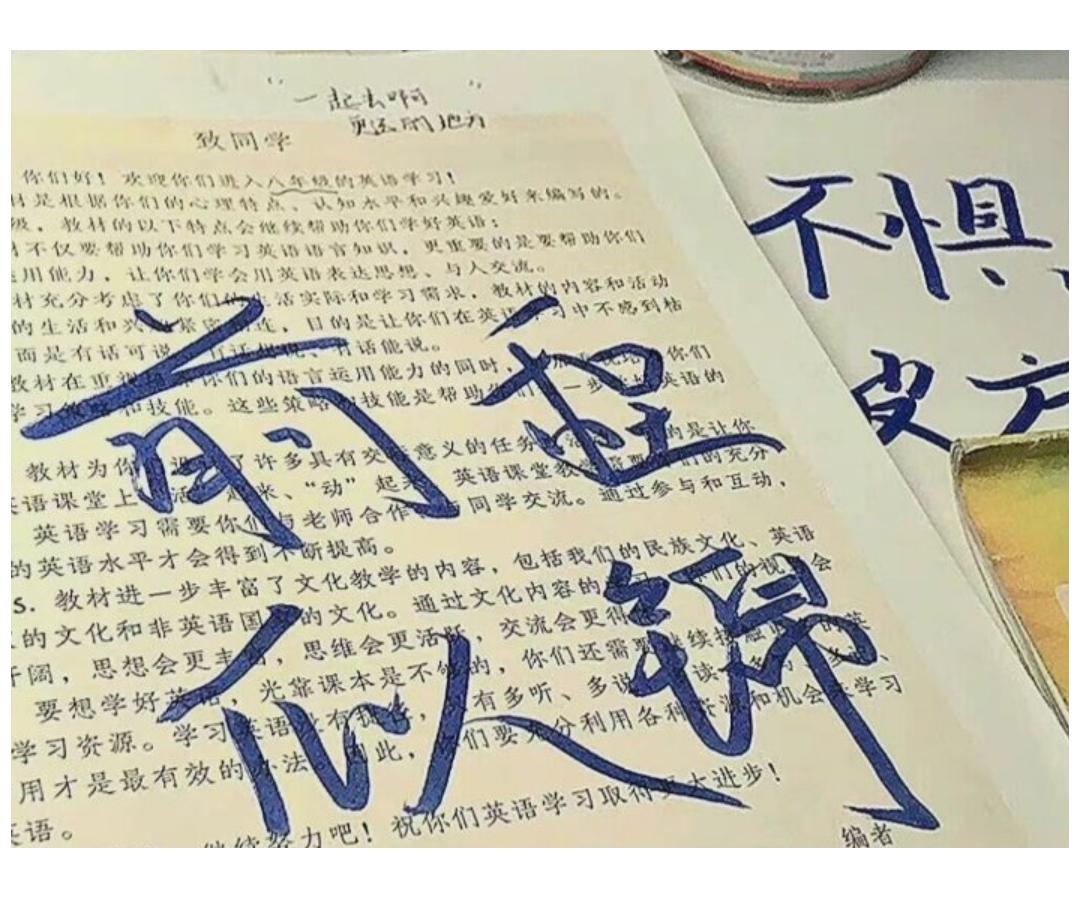 “一起去啊”
更远的地方
致同学
你们好！欢迎你们进入八年级的英语学习！
材是根据你们的心理特点、认知水平和兴趣爱好来编写的。
级，教材的以下特点会继续帮助你们学好英语：
材不仅要帮助你们学习英语语言知识，更重要的是要帮助你们
运用能力，让你们学会用英语表达思想、与人交流。
材充分考虑了你们的生活实际和学习需求，教材的内容和活动
的生活和兴 紧密相连，目的是让你们在英语学习中不感到枯
而是有话可说、有话想说、有话能说。
教材在重视 你们的语言运用能力的同时， 你们
学习策略和技能。这些策略 技能是帮助你们 一步 英语的
教材为你 了许多具有交 意义的任务 的是让你
英语课堂上“活”起来、“动”起来 英语课堂教学需要你们的充分
英语学习需要你们与老师合作 同学交流。通过参与和互动，
的英语水平才会得到不断提高。
5. 教材进一步丰富了文化教学的内容，包括我们的民族文化、英语
的文化和非英语国 的文化。通过文化内容的 你们的视 会
开阔，思想会更丰富，思维会更活跃，交流会更得
要想学好英语，光靠课本是不够的，你们还需要继续接触 的英
学习资源。学习英语没有捷径，只有多听、多说 读 多
用才是最有效的办法。因此，你们要充分利用各种资源和机会来学习
英语。
继续努力吧！祝你们英语学习取得更大进步！
编者
前程
似锦
不惧
皮方